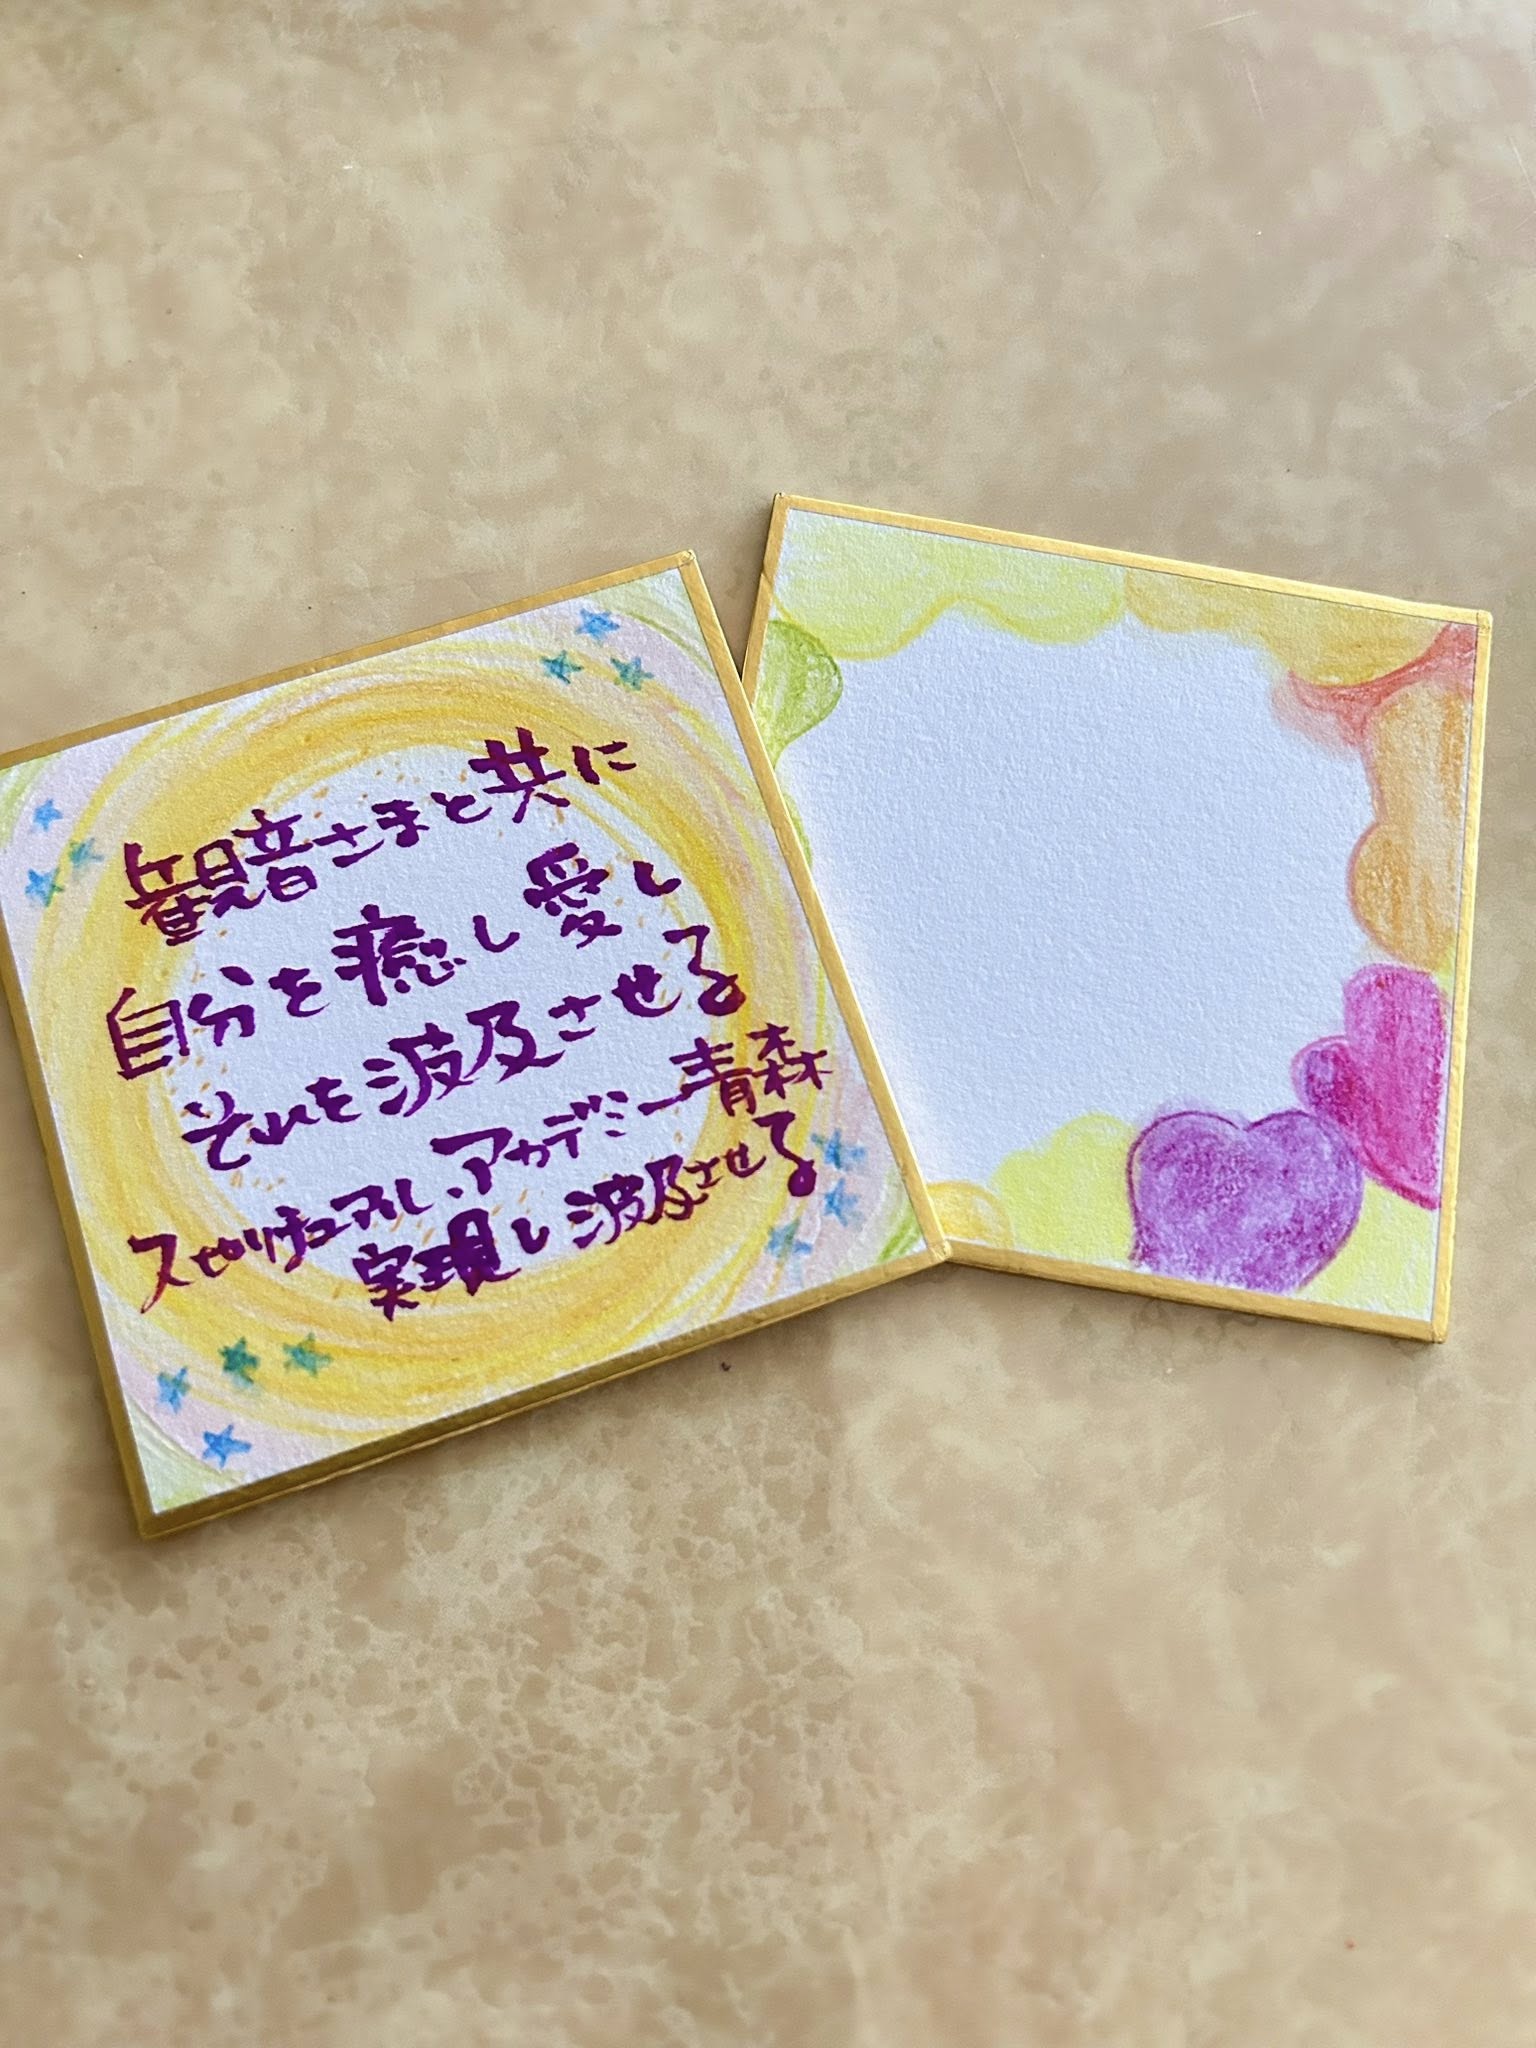 観音さまと共に
自分を癒し愛し
それを波及させる
スピリチュアル、アカデミー青森
実現し波及させる